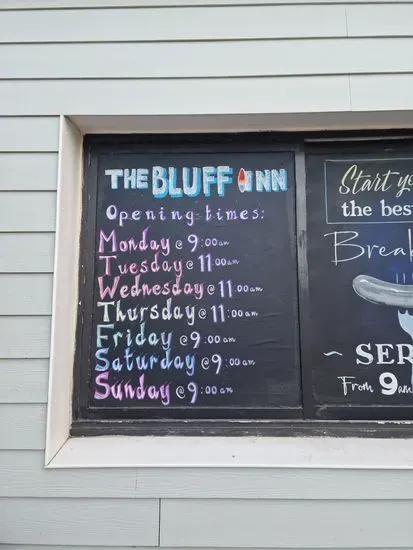 THE BLUFF INN
Opening times:
Monday @ 9:00am
Tuesday @ 11:00am
Wednesday @ 11:00am
Thursday @ 11:00am
Friday @ 9:00am
Saturday @ 9:00am
Sunday @ 9:00am
Start
the best
~ SER
From 9am